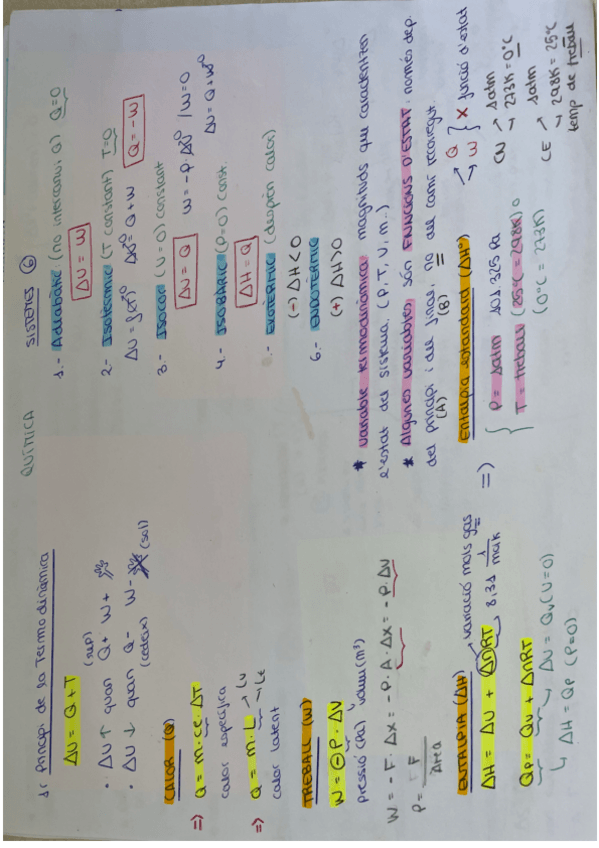 QUÍMICA
1r Principi de la Termodinàmica
ΔU = Q + T
• ΔU ↑ quan Q+ W+
(rep)
• ΔU ↓ quan Q- W-
(cedeix) (sol)
CALOR (Q)
⇒ Q = m · ce · ΔT
calor específica
⇒ Q = m · L → Lv
Le
calor latent
TREBALL (W)
W = -P · ΔV
pressió (Pa) volum (m³)
W = -F · ΔX = -P · A · ΔX = -P · ΔV
P = F
ENTALPIA (ΔH) variació mols gas
ΔH = ΔU + ΔnRT
8,31 J
QP = QV + ΔnRT
→ ΔU = QV (V=0)
→ ΔH = QP (P=0)
SISTEMES (6)
1.- Adiabàtic (no intercanvi Q) Q=0
ΔU = W
2.- Isotèrmic (T constant) T=0
ΔU = f(T)⁰ ΔU⁰ = Q + W Q = -W
3.- Isocor (V=0) constant
ΔU = Q W = -P · ΔV⁰ / W=0
ΔU = Q + W⁰
4.- ISOBÀRIC (P=0) const.
ΔH = Q
5.- EXOTÈRMIC (desprèn calor)
(-) ΔH < 0
6.- ENDOTÈRMIC
(+) ΔH > 0
* Variable termodinàmica: magnituds que caracteritzen
l'estat del sistema. (P, T, V, m.)
* Algunes variables són FUNCIONS D'ESTAT: només dep.
del principi i del final, no del camí recorregut.
(A) (B)
→ Q
→ W } X funció d'estat
Entalpia estandard (ΔH°)
⇒ { P = 1atm 101.325 Pa
T = treball (25°C = 298K) o
(0°C = 273K)
CN → 1atm
→ 273K = 0°C
CE → 1atm
→ 298K = 25°C
temp de treball